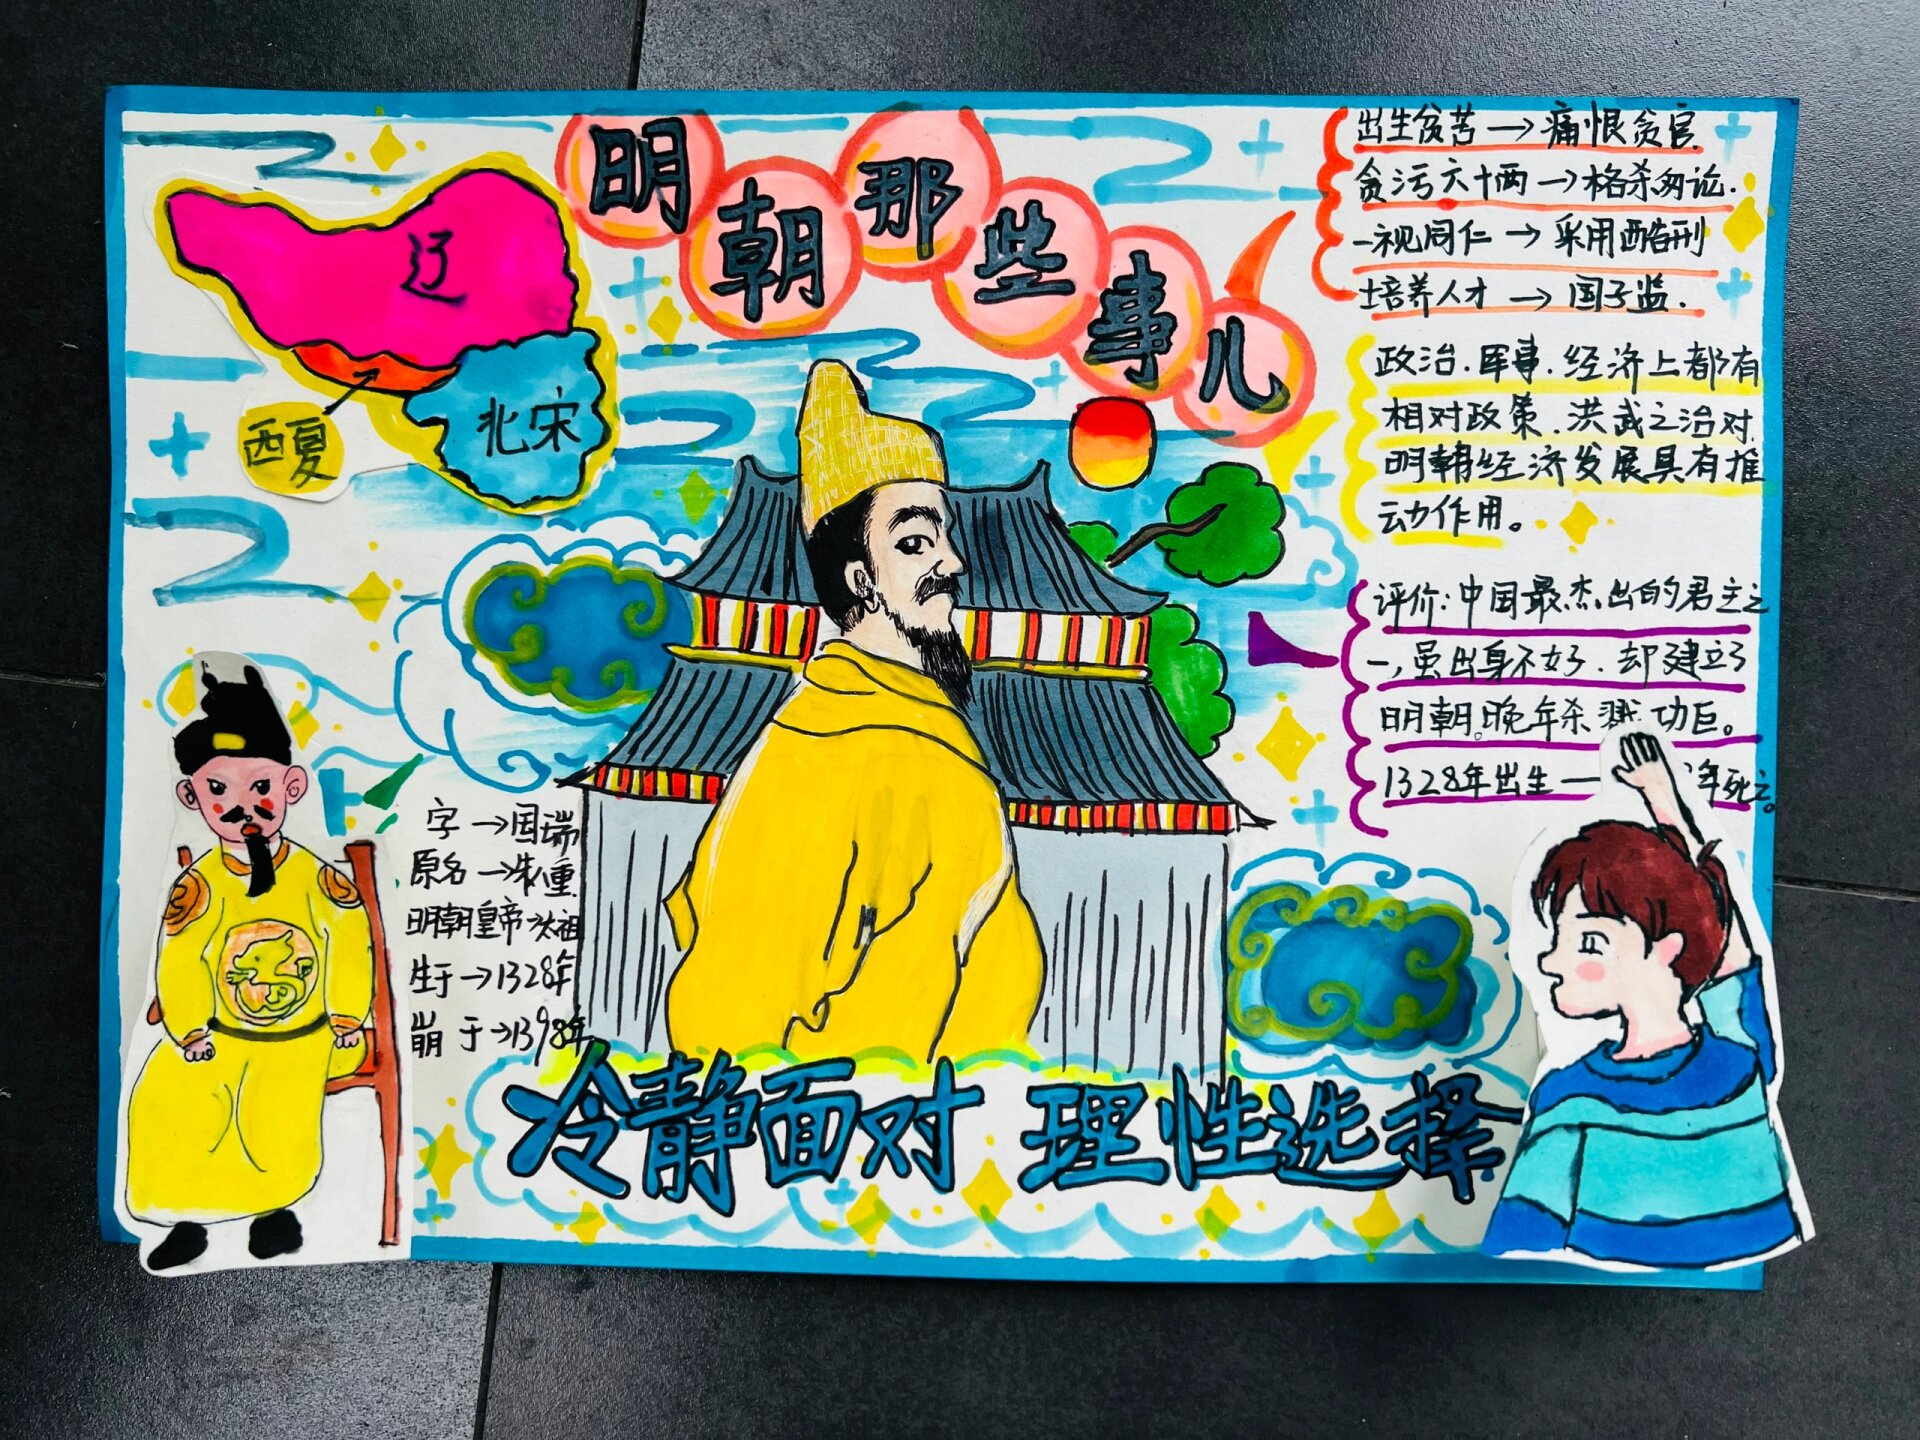 明朝那些事儿
辽
西夏
北宋
出生贫苦→痛恨贪官.
贪污六十两→格杀勿论.
一视同仁→采用酷刑
培养人才→国子监.
政治.军事.经济上都有
相对政策.洪武之治对
明朝经济发展具有推
动作用。
评价:中国最杰出的君主之
一,虽出身不好.却建立了
明朝。晚年杀戮功臣。
1328年出生一 年死亡。
字→国瑞
原名→朱重
明朝皇帝 祖
生于→1328年
崩于→1398年
冷静面对 理性选择